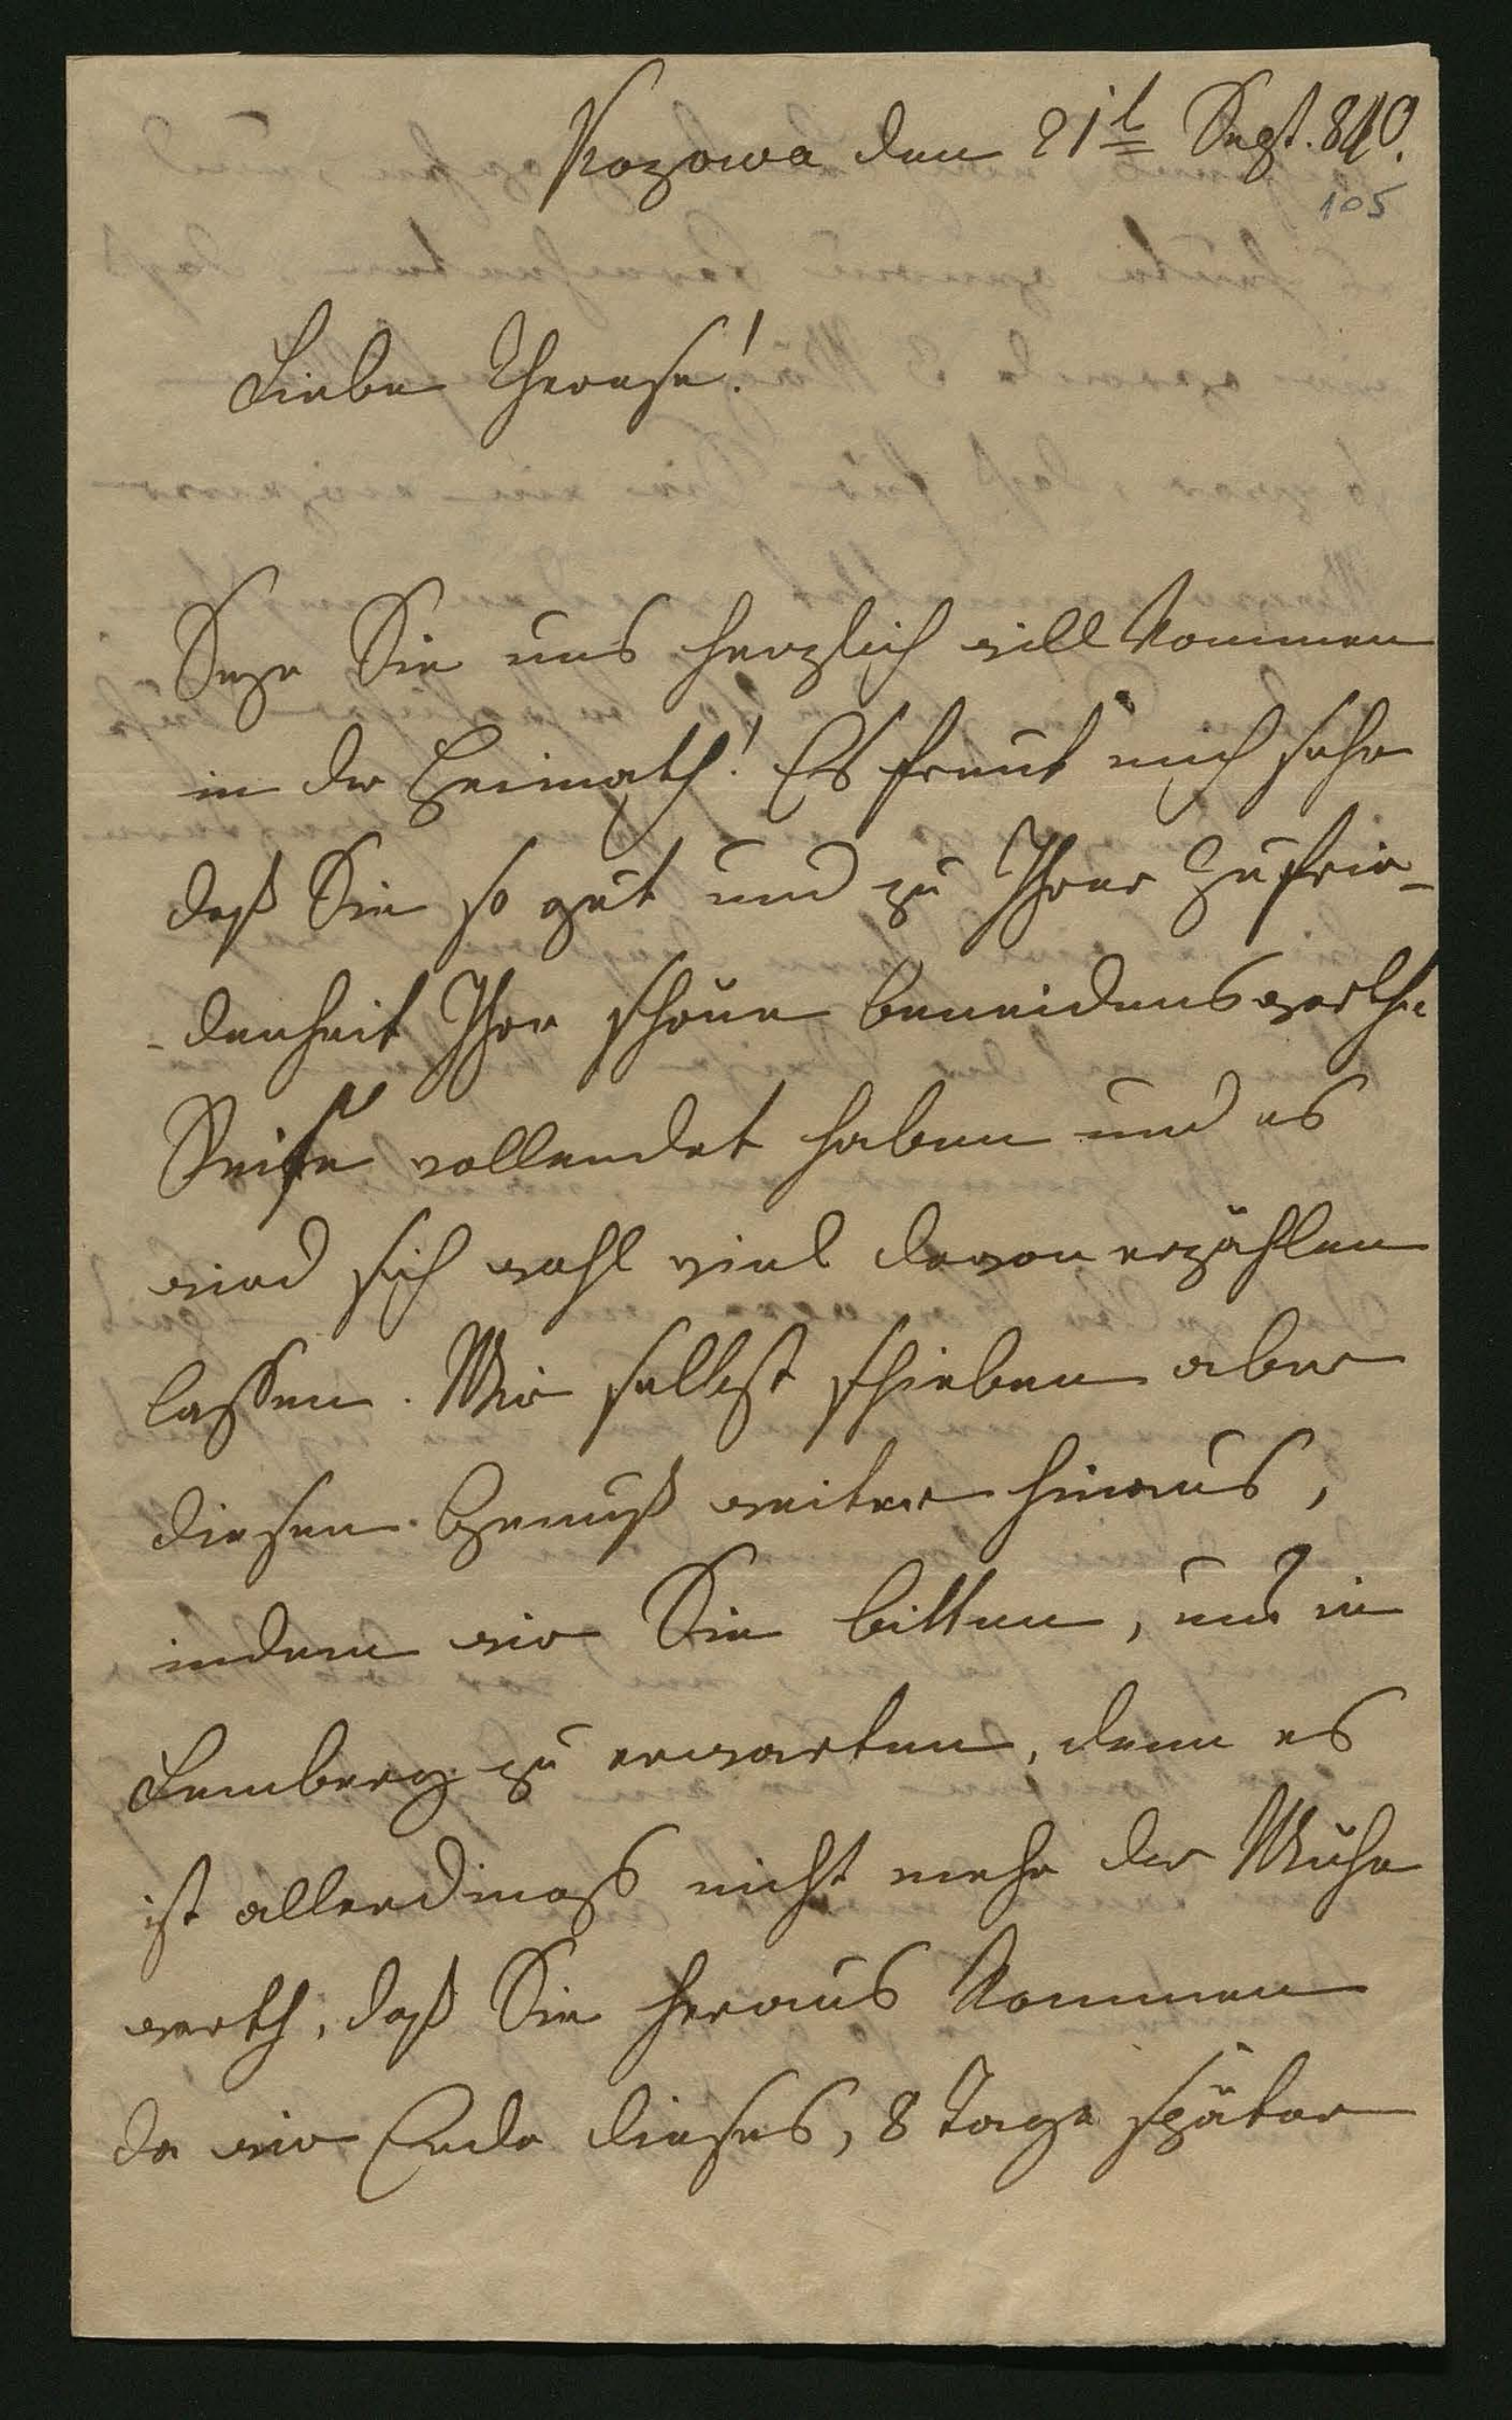 Kozowa den 21t Sept. 840.
105
Liebe Therese!
Seye Sie uns herzlich willkommen
in der Heimath! Es freut mich sehr
daß Sie so gut und zu Ihrer Zufrie-
-denheit Ihre schöne beneidenswerthe
Reise vollendet haben und es
wird sich wohl viel davon erzählen
lassen. Wir selbst schieben aber
diesen Genuß weiter hinaus,
indem wir Sie bitten, uns in
Lemberg zu erwarten, denn es
ist allerdings nicht mehr der Mühe
werth, daß Sie heraus kommen
da wir Ende dieses, 8 Tage später